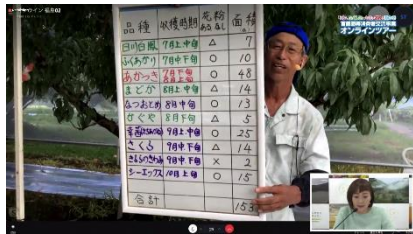 福島02
オンラインツアー
品種 収穫時期 花粉あるなし 面積
日川白鳳 7月上中旬 △ 7
ふくあかり 7月中下旬 ○ 10
あかつき 7月下旬 8月上旬 ○ 48
まどか 8月上中旬 △ 14
なつおとめ 8月中旬 ○ 13
かぐや 8月下旬 △ 5
9月上中旬 ○ 25
さくら 9月中下旬 △ 14
きららのきわみ 9月中下旬 × 2
シーエックス 10月上旬 ○ 15
合計 153